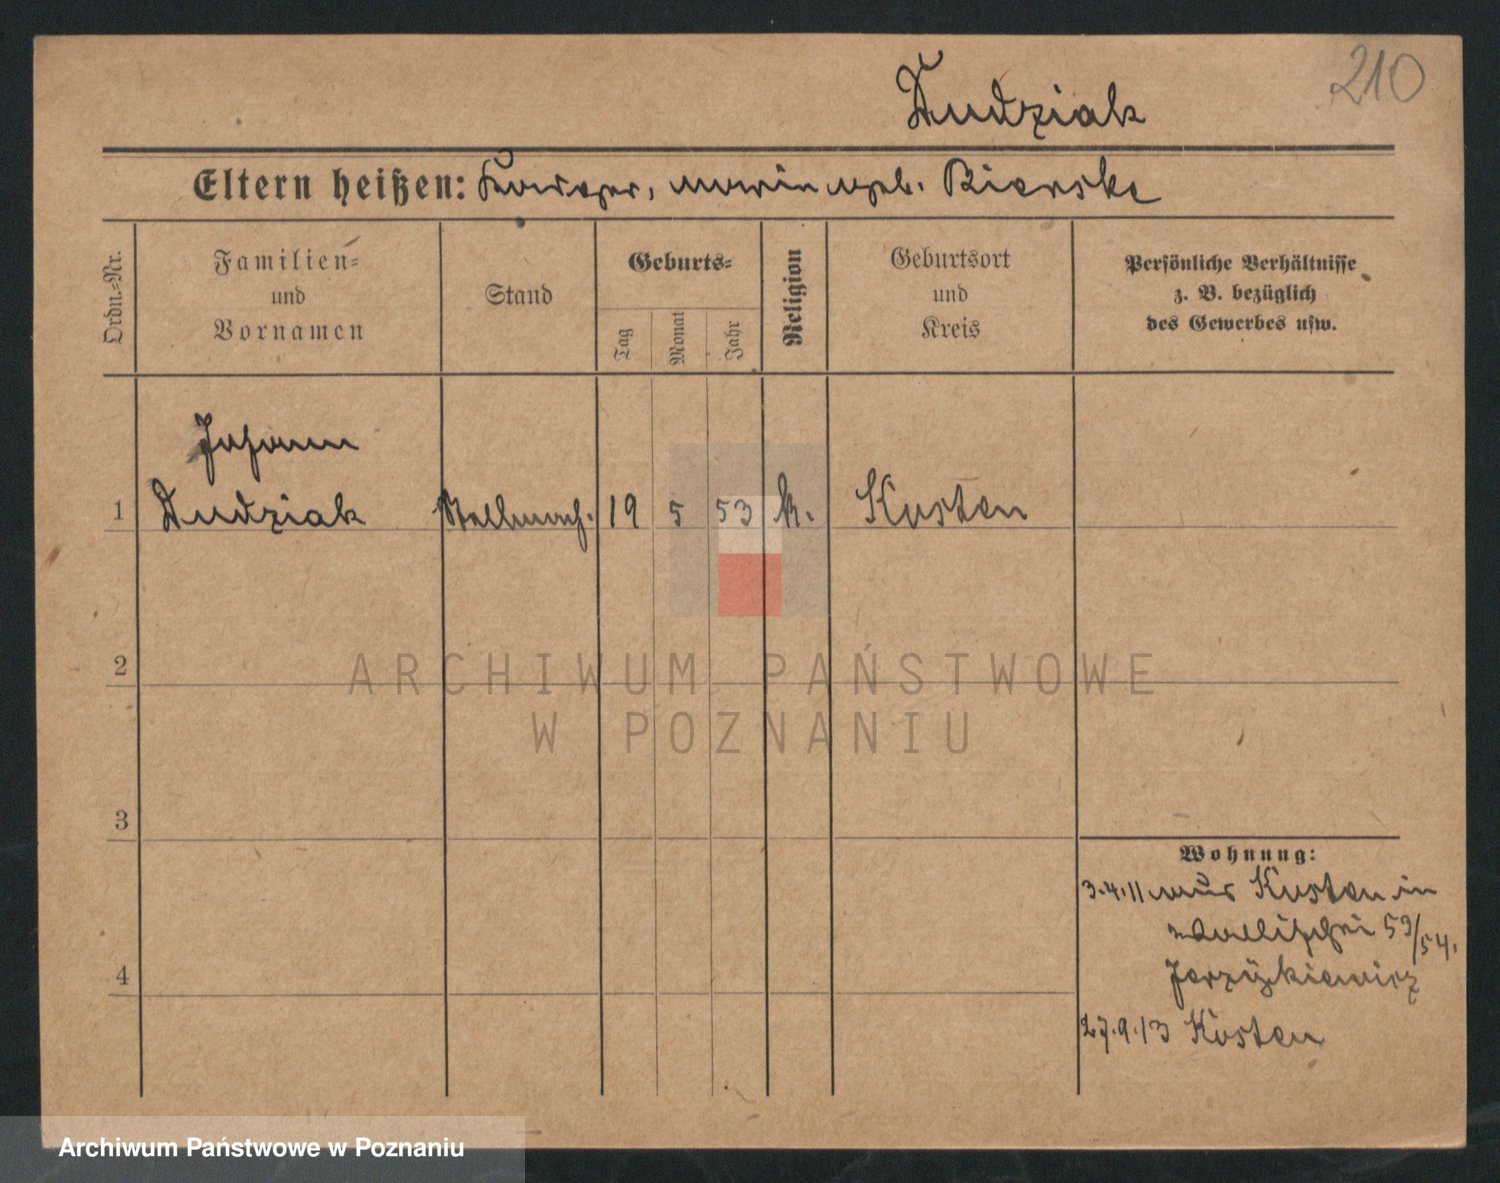 210
Dudziak
Eltern heißen: Kasper, Maria geb. Bierska
Ordn.-Nr.
Familien-
und
Vornamen
Stand
Geburts-
Tag
Monat
Jahr
Religion
Geburtsort
und
Kreis
Persönliche Verhältnisse
z. B. bezüglich
des Gewerbes usw.
Johann
1 Dudziak Stellmach. 19 5 53 k. Kosten
2
3
4
Wohnung:
3.4.11 aus Kosten in
Wallischei 53/54.
27.9.13 Kosten
ARCHIWUM PAŃSTWOWE
W POZNANIU
Archiwum Państwowe w Poznaniu